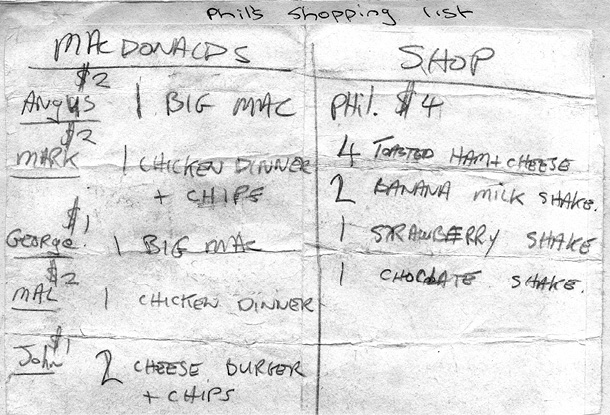 Phil's Shopping list
MACDONALDS
$2
Angus 1 BIG MAC
$2
MARK 1 CHICKEN DINNER
+ CHIPS
$1
George. 1 BIG MAC
$2
MAL 1 CHICKEN DINNER
$1
John 2 CHEESE BURGER
+ CHIPS
SHOP
Phil. $4
4 TOASTED HAM + CHEESE
2 BANANA MILK SHAKE.
1 STRAWBERRY SHAKE
1 CHOCOLATE SHAKE.